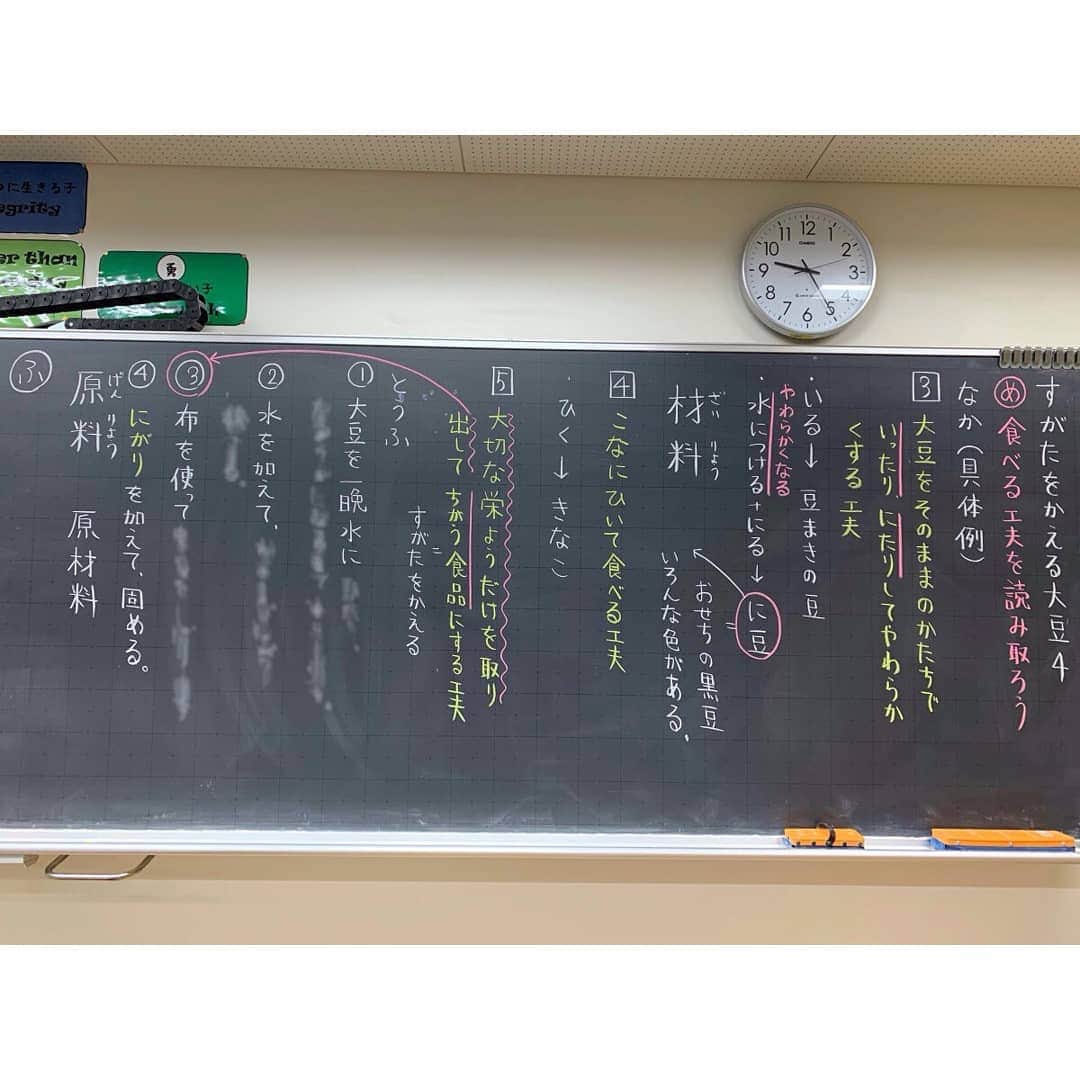 すがたをかえる大豆4
め 食べる工夫を読み取ろう
なか(具体例)
3 大豆をそのままのかたちで
いったり、にたりしてやわらか
くする工夫
・いる→豆まきの豆
やわらかくなる
・水につける+にる→に豆
おせちの黒豆
いろんな色がある。
ざい りょう
材料
4 こなにひいて食べる工夫
・ひく→きなこ
5 大切な栄ようだけを取り
出してちがう食品にする工夫
すがたをかえる
とうふ
① 大豆を一晩水に
② 水を加えて、
③ 布を使って
④ にがりを加えて、固める。
げん りょう
原料 原材料
ふ
に生きる子
egrity
er than
勇
子
k
CASIO
12 1 2 3 4 5 6 7 8 9 10 11